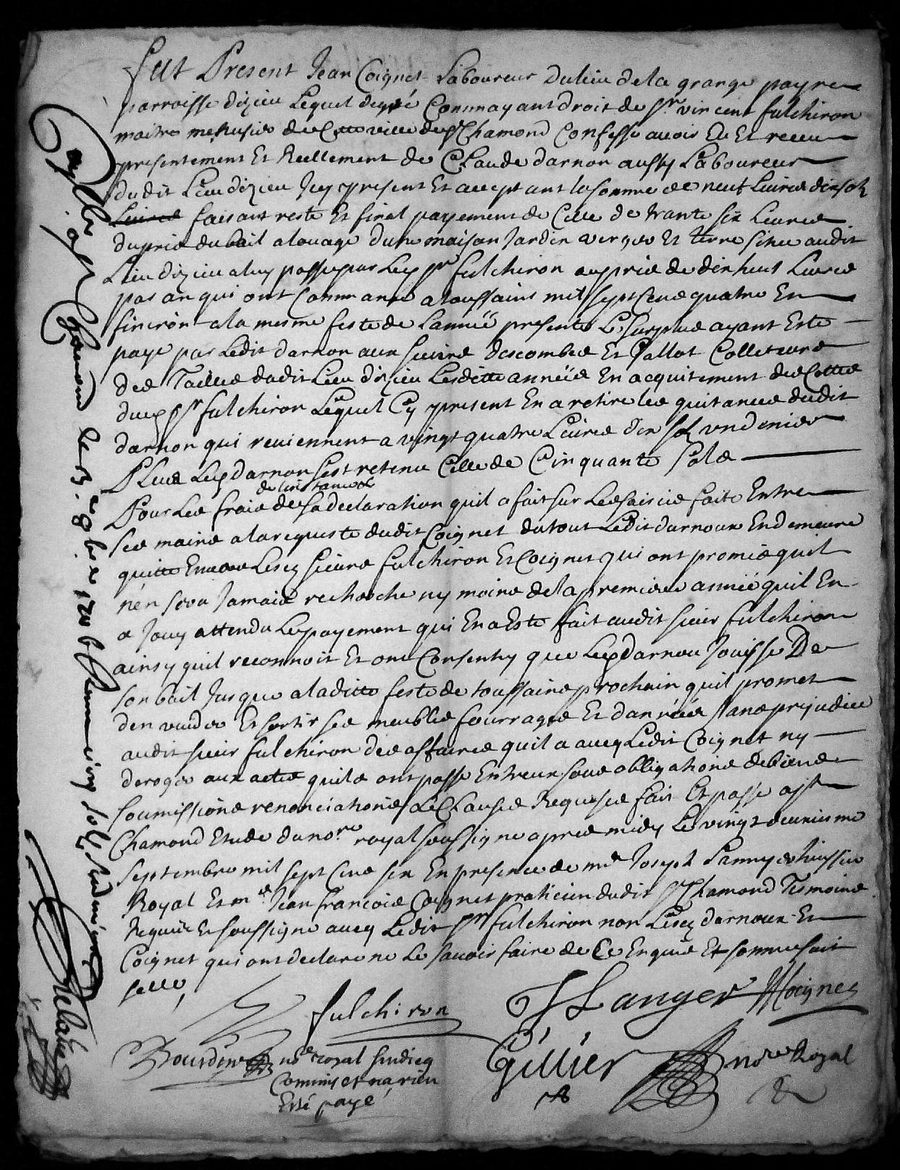 fut Present Jean Coignet Laboureur du lieu de la grange payre
parroisse dizieu Lequel de gré Comme ayant droit de Sr vincent fulchiron
maitre menusier de Cette ville de St Chamond Confesse avoir Eu Et receu
presentement Et Reellement de Claude darnon aussy Laboureur
dudit Lieu dizieu Icy present Et acceptant la somme de neuf Livres dix sols
faisant reste Et final payement de Celle de trante six Livres
du prix du bail a louage d'une maison Jardin verger Et terre scitue audit
Lieu dizieu a luy passe par Led Sr fulchiron au prix de dix huit Livres
par an qui ont Commance a toussains mil sept Cens quatre Et
finiront a la mesme feste de Lannée presente Le surplus ayant Esté
payé par Ledit darnon aux sieurs descombes Et Pallot Collecteurs
des Tailles dudit Lieu dizieu Lesdittes années En acquitement des Cottes
dud Sr fulchiron Lequel Cy present En a retire les quitances dudit
darnon qui reviennent a vingt quatre Livres dix sol un denier
Plus Led darnon sest retenu Celle de Cinquante sols
de linstance
Pour Les frais de sa declaration quil a fait sur Les saisies faite Entre
ses mains a la requeste dudit Coignet du tout Ledit darnoux En demeure
quitte Envers Lesd sieurs fulchiron Et Coignet qui ont promis quil
nen sera Jamais recherche ny moins de la premiere année quil En
a Jouy attendu Le payement qui En a Esté fait audit sieur fulchiron
ainsy quil reconnoit Et ont Consenty que Led darnou Jouisse De
son bail Jusque a laditte feste de toussains prochain quil promet
den vuider Et sortir ses meubles fourrages Et danrées sans prejudice
audit sieur fulchiron des affaires quil a avecq Ledit Coignet ny
deroger aux actes quils ont passe Entreux sous obligations de biens
soumissions renonciations Et Clauses Requises fait Et passe a St
Chamond Etude du nore royal soussigne apres midy Le vingt deuxiesme
Septembre mil sept Cens six En presence de me Joseph huissier
Royal Et me Jean francois Coignet praticien dudit St Chamond Tesmoins
Requis Et soussigne avecq Ledit Sr fulchiron non Lesd darnoux Et
Coignet qui ont declare ne Le savoir faire de Ce Enquis Et somme soit
selle
fulchiron
JLanger
JCoignet
Bourdin nre royal sindicq
Commis et na rien
Esté payé
Gillier
nore Royal
le 13e 8bre 1706